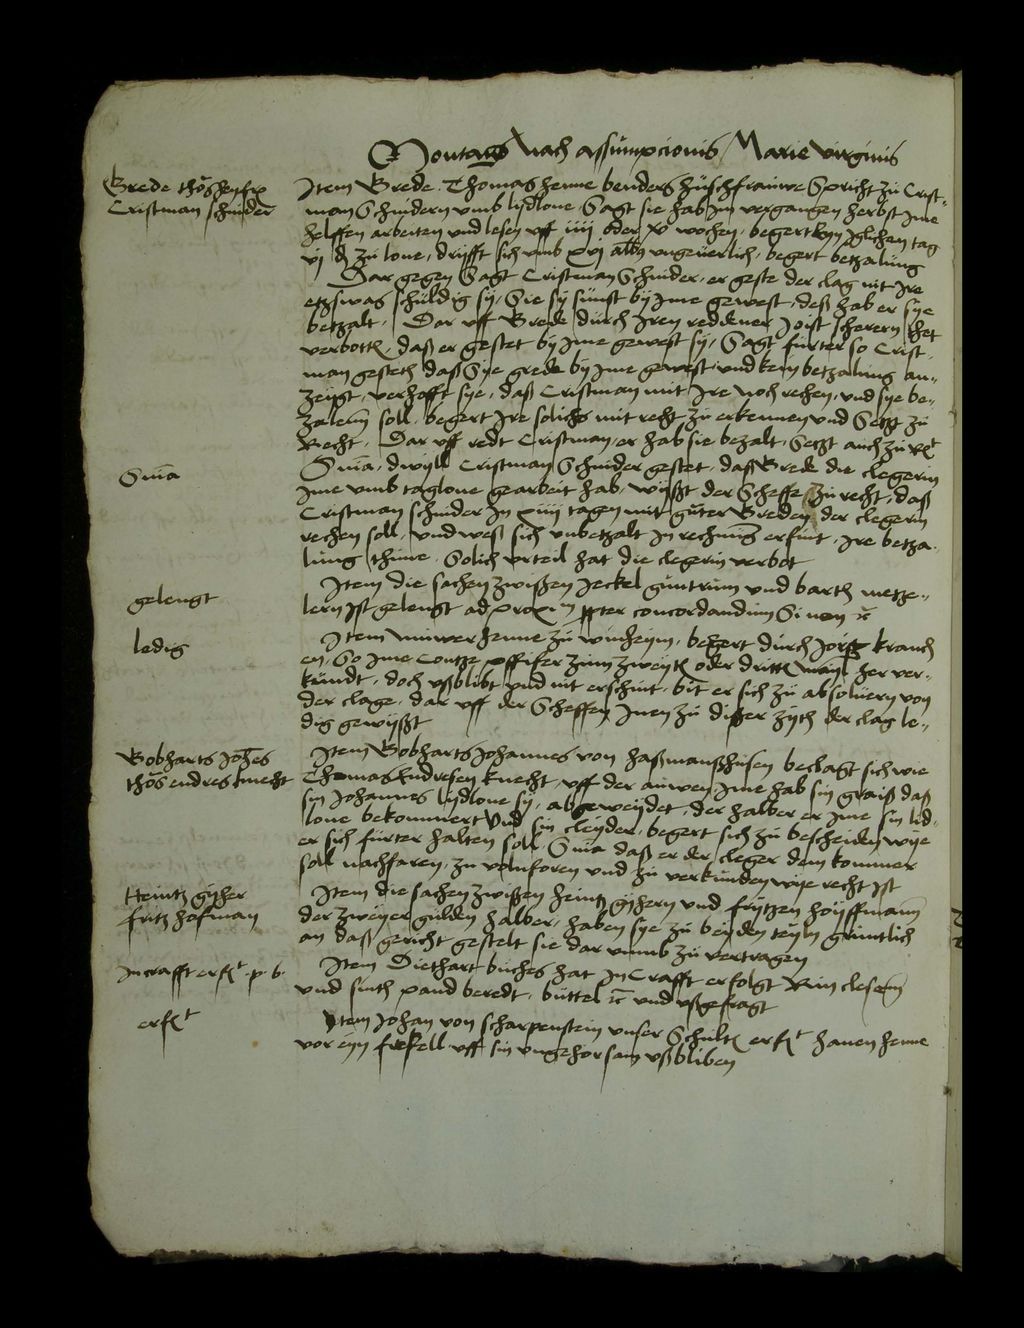 Montags Nach assumpcionis Marie virginis
Grede thoṡ hen fr
Cristman schnider
Item Grede Thomas henne benders hußfrauwe Spricht zu Crist-
man Schnidern vmb lydlone Sagt sie hab im vergangen herbst Ime
helffen arbeiten vnd lesen vff iiii oder v wochen, begert eyn Iglichen tag
vj ₰ zu lone, drifft sich vmb xvj alb9 vngeuerlich, begert betzalung
Dar gegen Sagt Cristman Schnider, er geste der clag nit Ire
etzswas schuldig sy, Sie sy sunst by Ime gewest, deß hab er sye
betzalt. Dar vff Grede durch Iren reddener Joist scherern het
verbott, daß er gestet by Ime gewest sy, Sagt furter so Crist-
man gesteth daß Sye grede by Ime gewest vnd kein betzalung an-
zeugt, verhofft sye, daß Cristman mit Ire noch rechen, vnd sye be-
zalenn soll, begert Ire solichs mit recht zu erkennen vnd Setzt zu
Recht. Dar vff redt Cristman, er hab sie bezalt, Setzt auch zu r
Snīa
Snīa, dwyll Cristman Schnider gestet, daß Grede die clegerin
Ime vmb taglone gearbeit hab, wyßt der Scheffe zu recht, daß
Cristman schnider In xiiij tagen mit guter Greden der clegerin
rechen soll, vnd weß sich vnbetzalt In rechnūg erfint, Ire betza-
lung thuwe, Solich vrteil hat die clegerin verbot
gelengt
Item die sachen zwißen Jeckel guntrum vnd barth metze-
lern Ist gelengt ad proxī concordandum Si non
ledig
Item henne zu winheym, begert durch Jorg kranch
en, So Ime Contze pffifer zum zweyt oder dritt male her ver-
kundt, doch vßblibt vnd nit erschint, bit er sich zu absoluern von
der clage, dar vff der Scheffen Inen zu dißer zyth der clag le-
dig gewyßt
Bobharts Johēs
thoṡ endres knecht
Item Bobharts Johannes von haßmanßhusen beclagt sich wie
Thomas Endresen knecht, vff der auwen Ime hab sin graiß daß
syn Johannes lydlone sy, abgeweydet, der halber er Ime sin lid-
lone bekommert vnd sin cleyder, begert sich zu bescheiden wye
er sich furter halten soll, Snīa daß er der cleger dem kommer
soll nachfaren, zu volnfuren vnd zu verkunden wye recht Ist
Heintz gyßer
fritz hofman
Item die sachen zwißen heintz gyßern vnd frytzen hoyffmann
der zweyer gulden halber, haben sye zu beyden teyln gruntlich
an daß gericht gestelt sie dar vmmb zu vertragen
In crafft erf p. b.
Item Diethart buches hat In Crafft erfolgt Rin clesenn
vnd sinth pand beredt, buttel vnd vßgefragt
erf
Item Johan von scharpenstein vnser Schult erf hanen henne
vor eyn freffell vff sin vngehorsam vßbliben